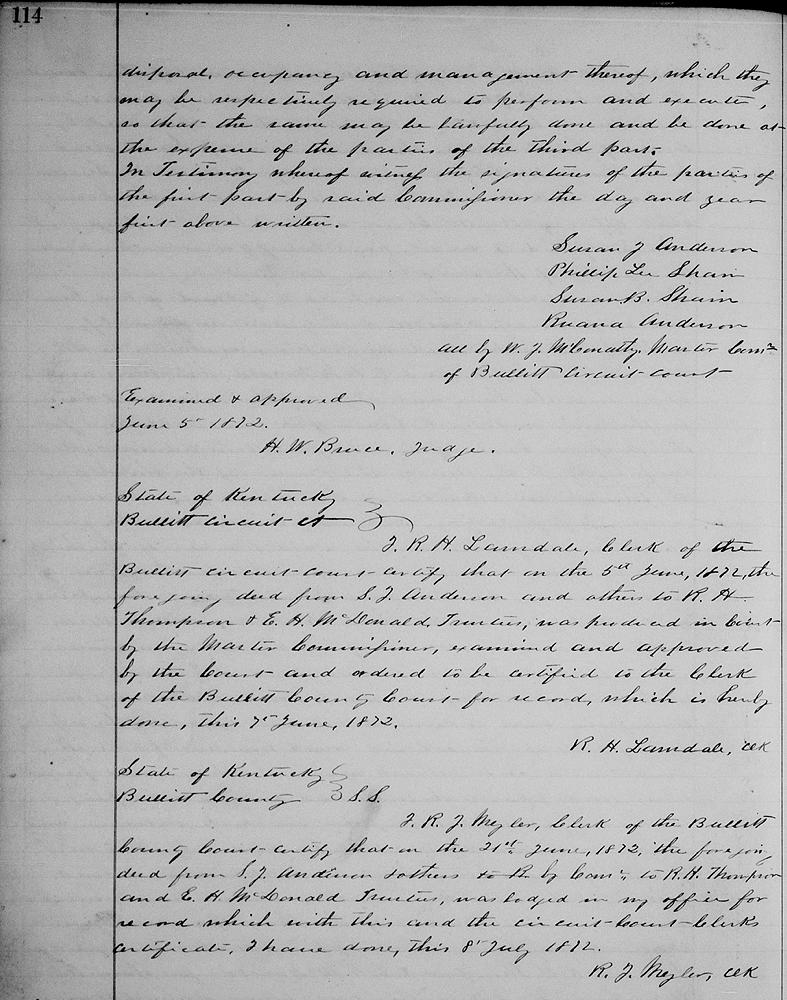 114
disposal, occupancy and management thereof, which they
may be respectively required to perform and execute,
so that the same may be lawfully done and be done at
the expense of the parties of the third part.
In Testimony whereof witness the signatures of the parties of
the first part by said Commissioner the day and year
first above written.
Susan J Anderson
Phillip Lee Shain
Susan B. Shain
Ruana Anderson
all by W. J. McConathy, Master Comr
of Bullitt Circuit Court
Examined & approved
June 5th 1872.
H. W. Bruce, Judge.
State of Kentucky
Bullitt Circuit Ct
I. R. H. Lansdale, Clerk of the
Bullitt Circuit Court certify that on the 5th June, 1872, the
foregoing deed from S. J. Anderson and others to R. H
Thompson & E. H. McDonald, Trustees, was produced in Court
by the Master Commissioner, examined and approved
by the Court and ordered to be certified to the Clerk
of the Bullitt County Court for record, which is hereby
done, this 7th June, 1872.
R. H. Lansdale, Clk
State of Kentucky
Bullitt County S.S.
I. R. J. Meyler, Clerk of the Bullitt
County Court certify that on the 21st June, 1872, the foregoing
deed from S. J. Anderson & others by Comr, to R. H. Thompson
and E. H. McDonald Trustees, was lodged in my office for
record which with this and the circuit Court Clerks
certificate, I have done, this 8th July 1872.
R. J. Meyler, Clk